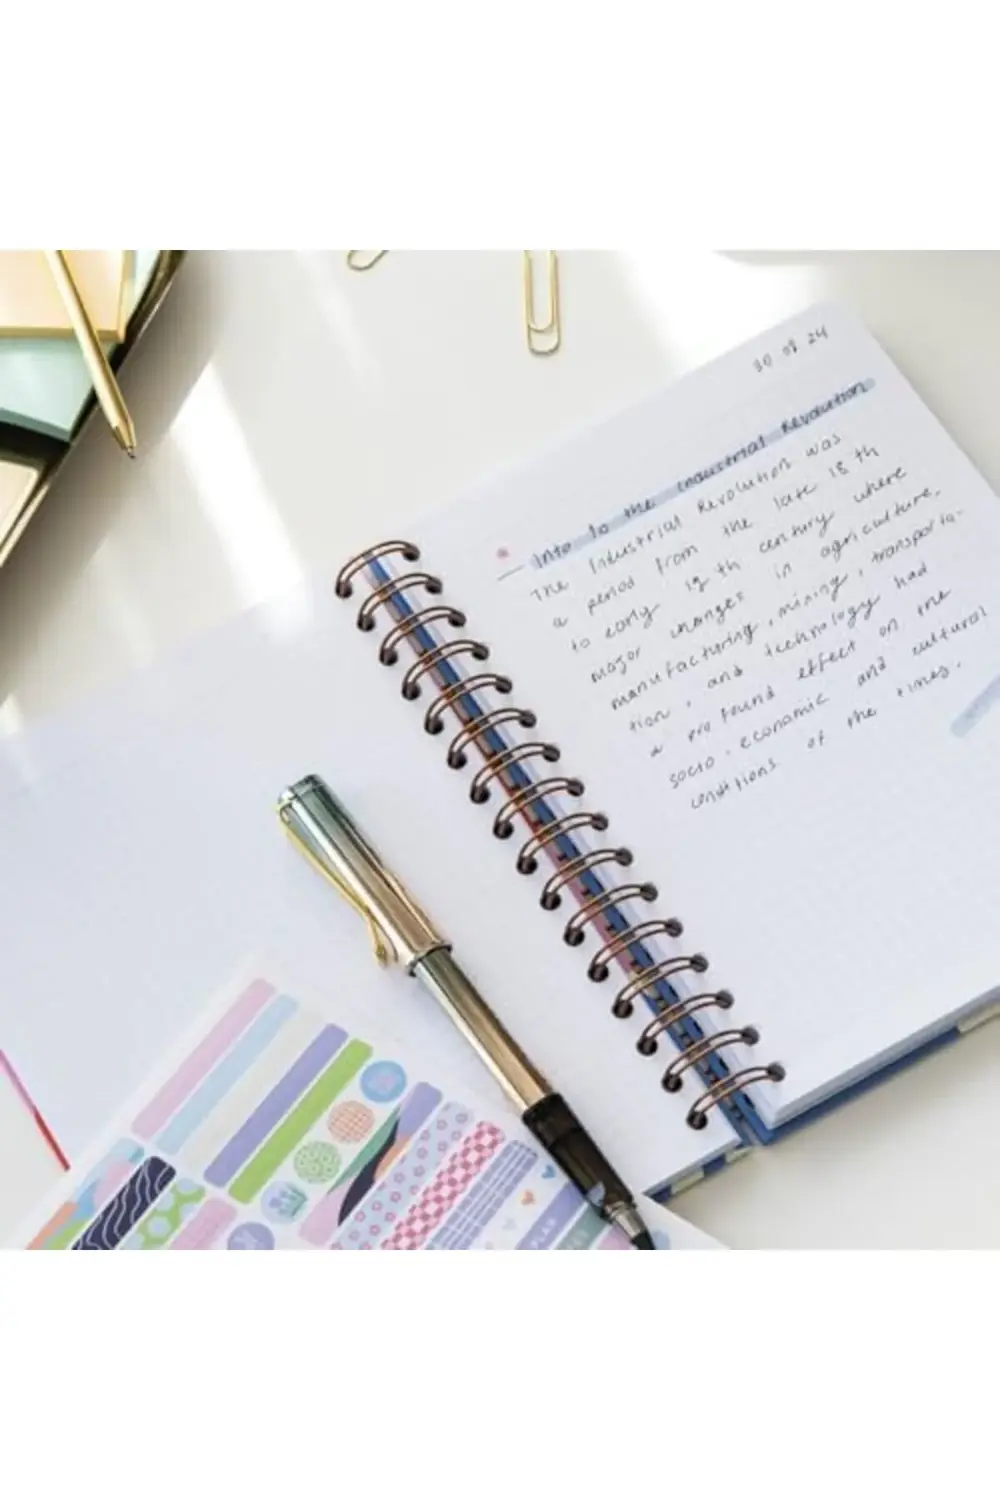 30 08 24
Into to the Industrial Revolution
The Industrial Revolution was
a period from the late 18th
to early 19th century where
major changes in agriculture,
manufacturing, mining, transporta-
tion, and technology had
a profound effect on the
socio-economic and cultural
conditions of the times.
PLAN